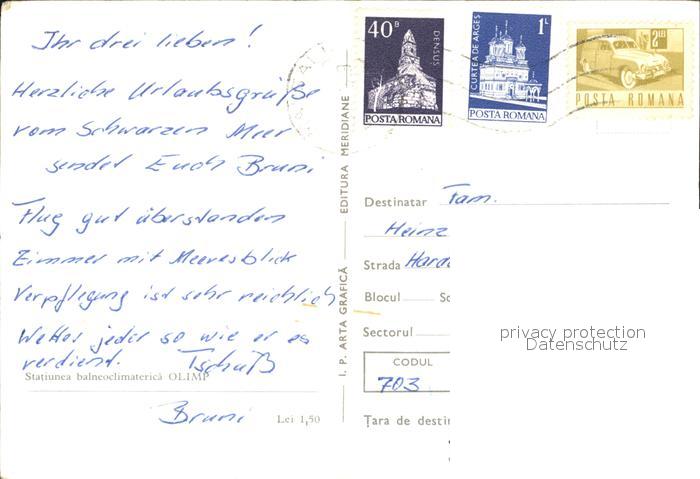 Ihr drei lieben!
Herzliche Urlaubsgrüße
vom Schwarzen Meer
sendet Euch Bruni
Flug gut überstanden
Zimmer mit Meeresblick
Verpflegung ist sehr reichlich
Wetter jeder so wie er es
verdient. Tschüß
Stațiunea balneoclimaterică OLIMP
Bruni
Lei 1,50
I. P. ARTA GRAFICĂ — EDITURA MERIDIANE
40 B
DENSUȘ
POSTA ROMANA
1 L
CURTEA DE ARGEȘ
POSTA ROMANA
2 LEI
POSTA ROMANA
Destinatar Fam.
Heinz
Strada
Blocul
Sectorul
CODUL
703
Țara de destin
privacy protection
Datenschutz